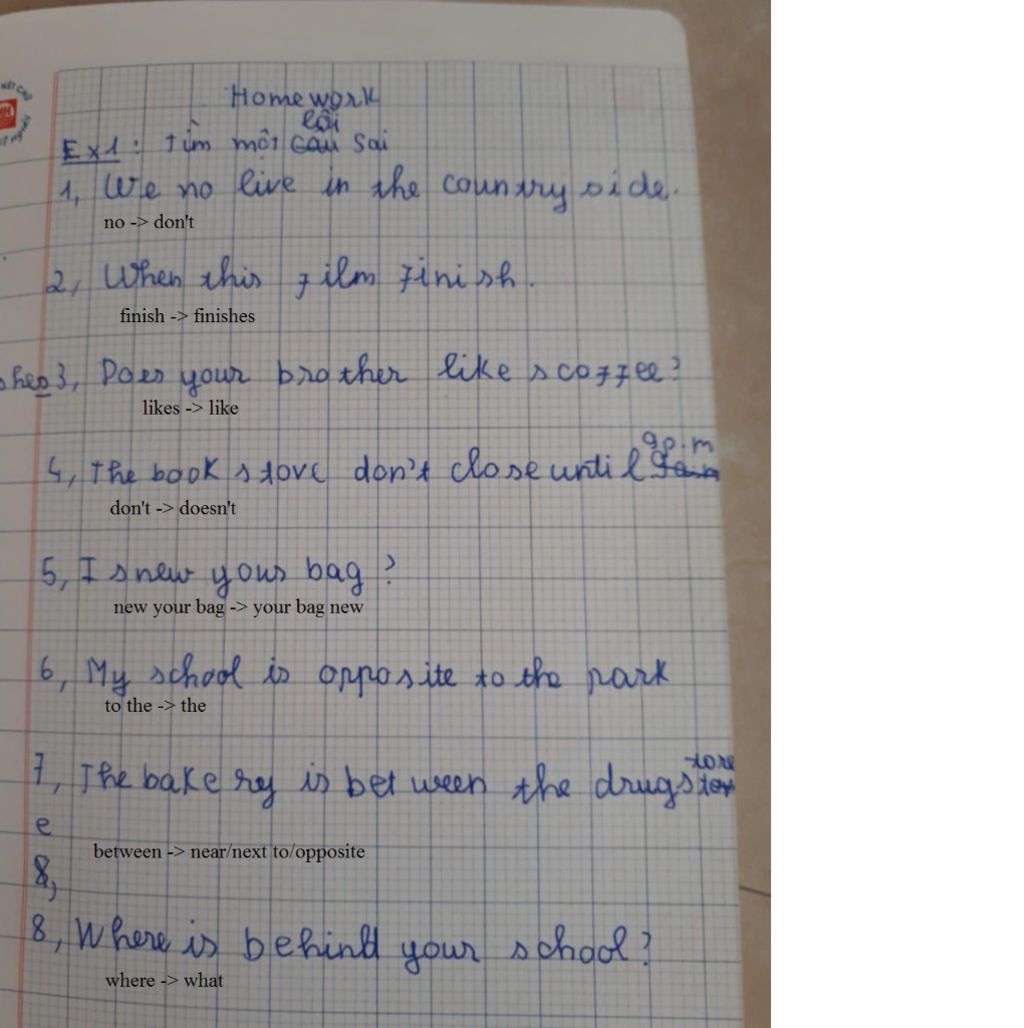 Homework
lỗi
Ex1: Tìm một câu sai
1, We no live in the country side.
no -> don't
2, When this film finish.
finish -> finishes
3, Does your brother likes coffee?
likes -> like
9p.m
4, The book store don't close until
don't -> doesn't
5, Is new your bag?
new your bag -> your bag new
6, My school is opposite to the park
to the -> the
tore
7, The bakery is between the drugs
e
between -> near/next to/opposite
8,
8, Where is behind your school?
where -> what